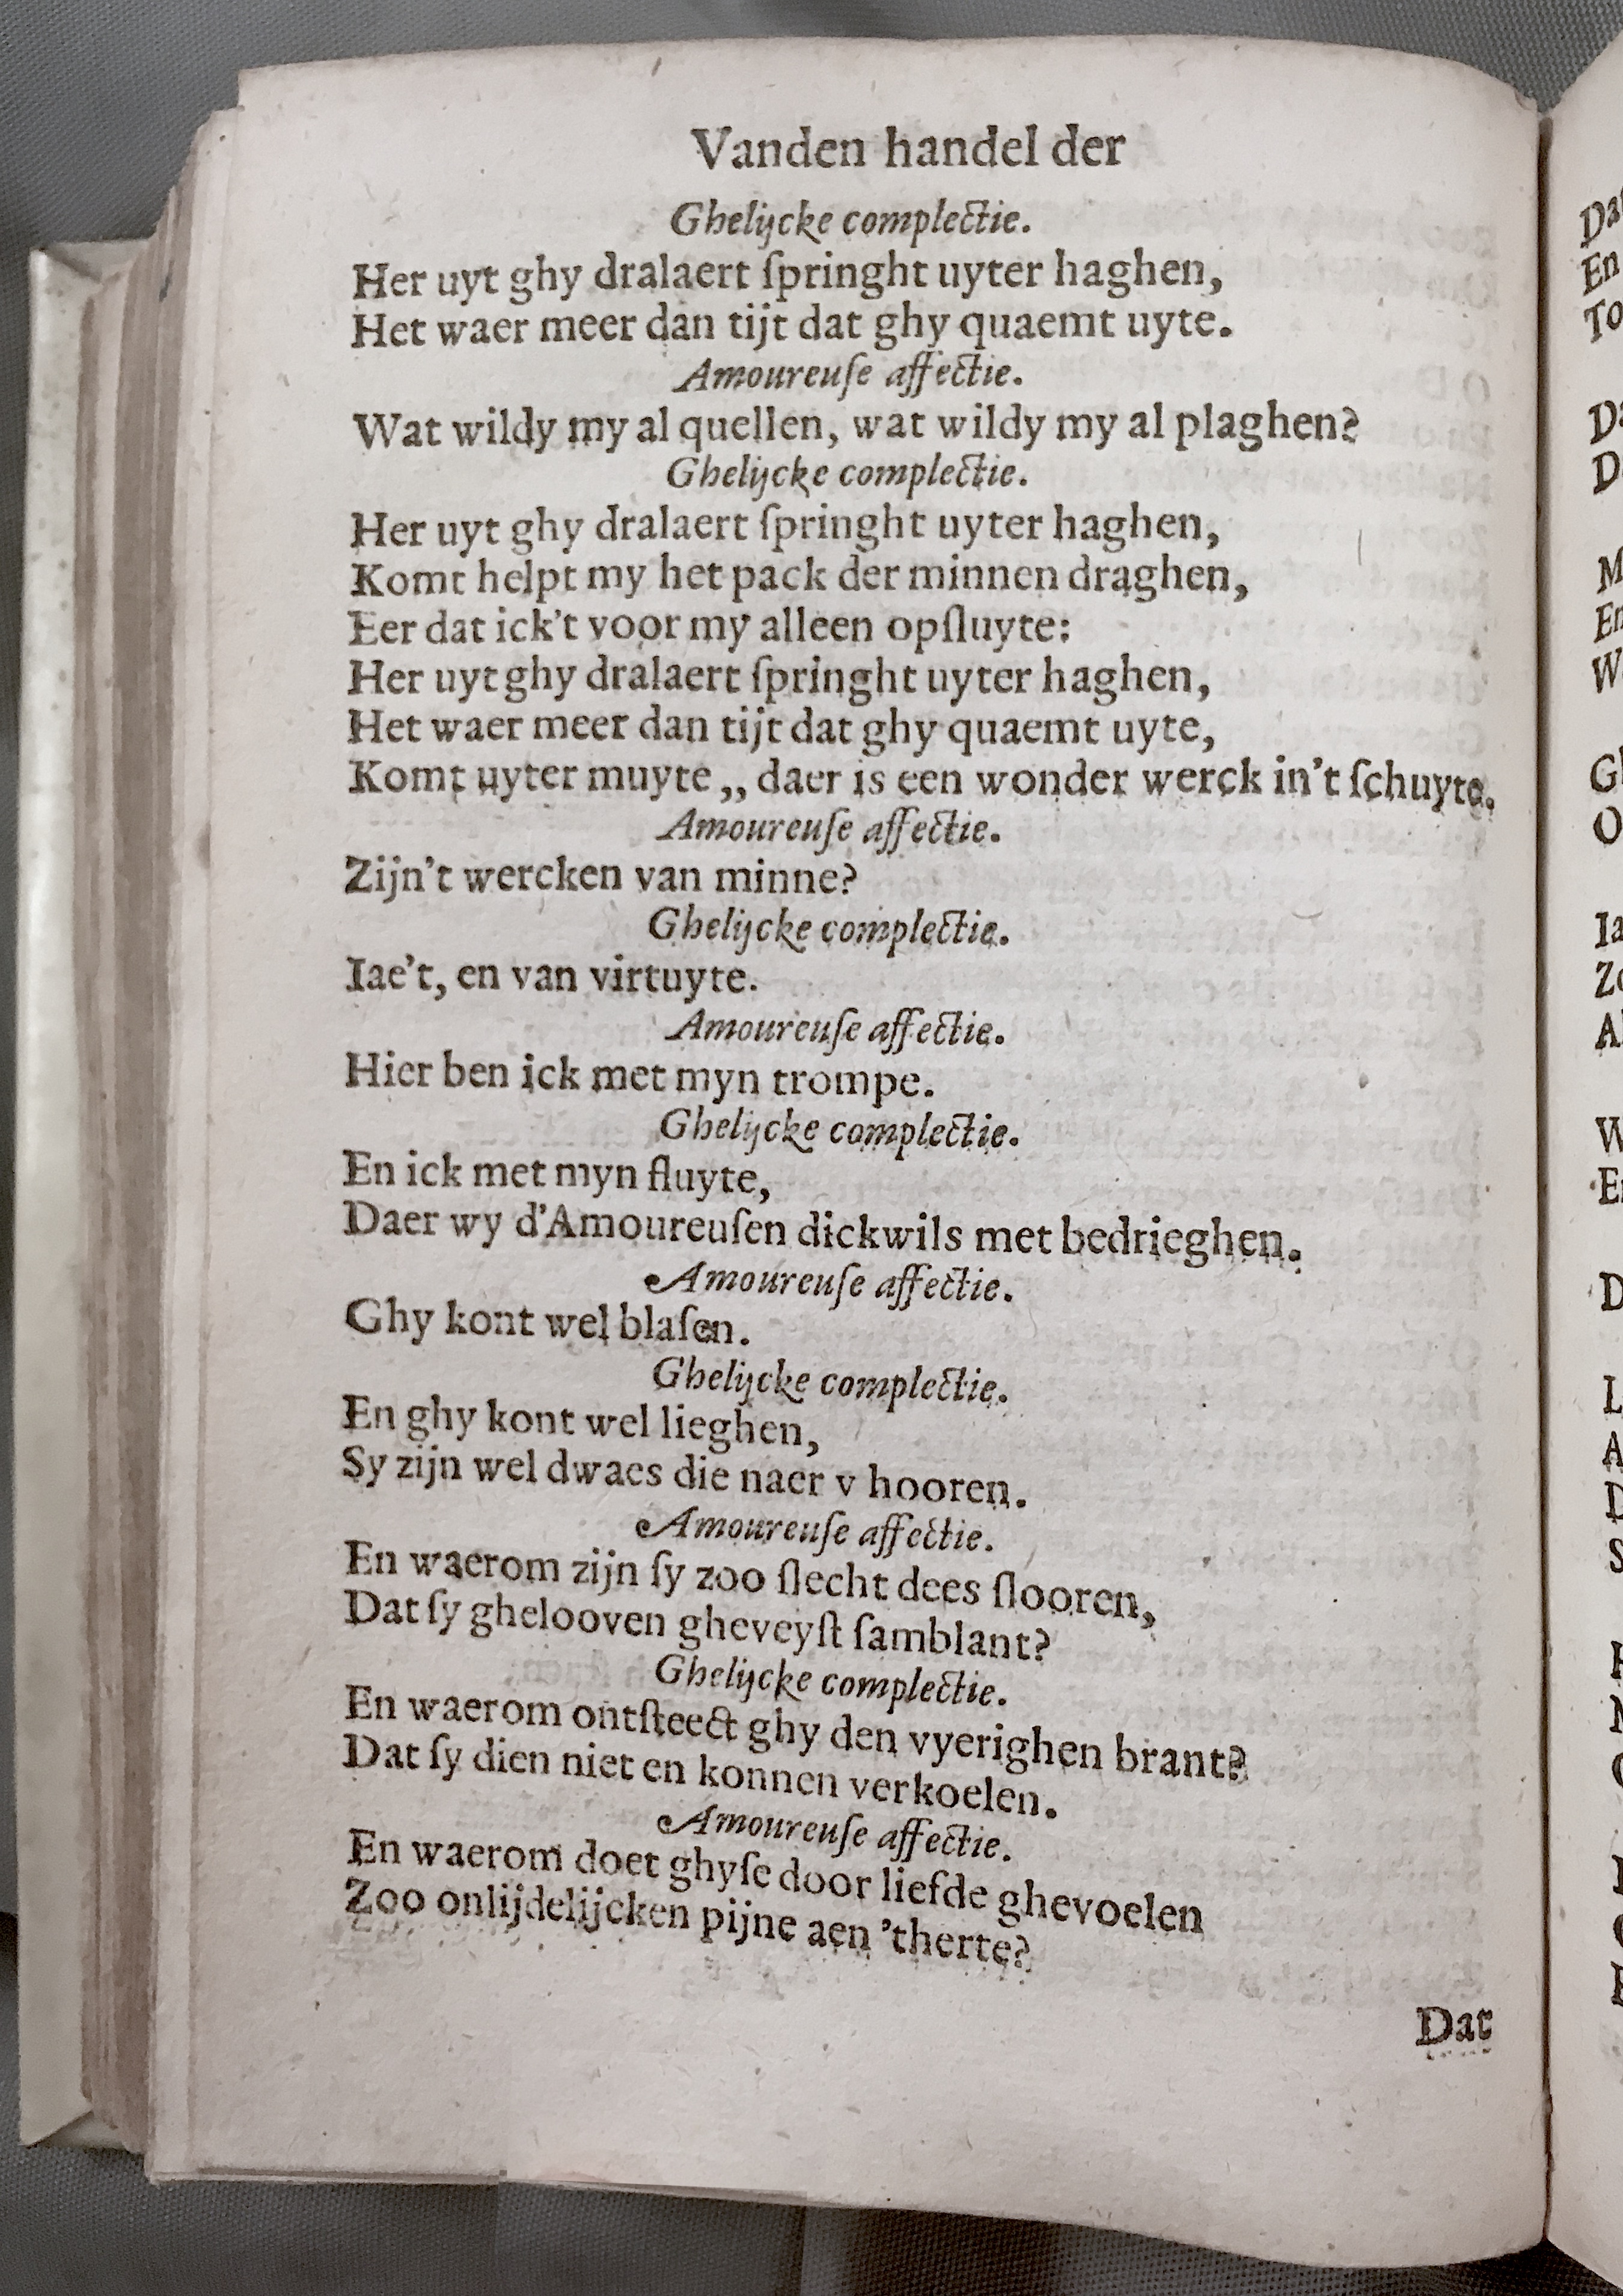 Vanden handel der
Ghelijcke complectie.
Her uyt ghy dralaert ſpringht uyter haghen,
Het waer meer dan tijt dat ghy quaemt uyte.
Amoureuſe affectie.
Wat wildy my al quellen, wat wildy my al plaghen?
Ghelijcke complectie.
Her uyt ghy dralaert ſpringht uyter haghen,
Komt helpt my het pack der minnen draghen,
Eer dat ick't voor my alleen opſluyte:
Her uyt ghy dralaert ſpringht uyter haghen,
Het waer meer dan tijt dat ghy quaemt uyte,
Komt uyter muyte,, daer is een wonder werck in't ſchuyte.
Amoureuſe affectie.
Zijn't wercken van minne?
Ghelijcke complectie.
Iae't, en van virtuyte.
Amoureuſe affectie.
Hier ben ick met myn trompe.
Ghelijcke complectie.
En ick met myn fluyte,
Daer wy d'Amoureuſen dickwils met bedrieghen.
Amoureuſe affectie.
Ghy kont wel blaſen.
Ghelijcke complectie.
En ghy kont wel lieghen,
Sy zijn wel dwaes die naer v hooren.
Amoureuſe affectie.
En waerom zijn ſy zoo ſlecht dees ſlooren,
Dat ſy ghelooven gheveyſt ſamblant?
Ghelijcke complectie.
En waerom ontſteect ghy den vyerighen brant?
Dat ſy dien niet en konnen verkoelen.
Amoureuſe affectie.
En waerom doet ghyſe door liefde ghevoelen
Zoo onlijdelijcken pijne aen 'therte?
Dat